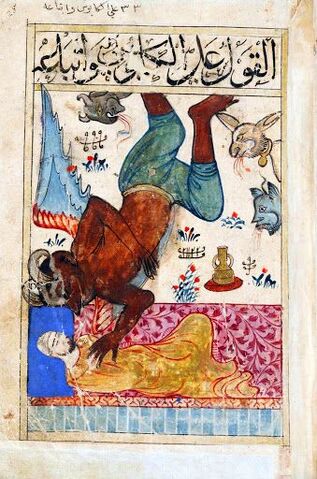 ٣٣ على كابوس واتباعه
القول على الكابوس واتباعه